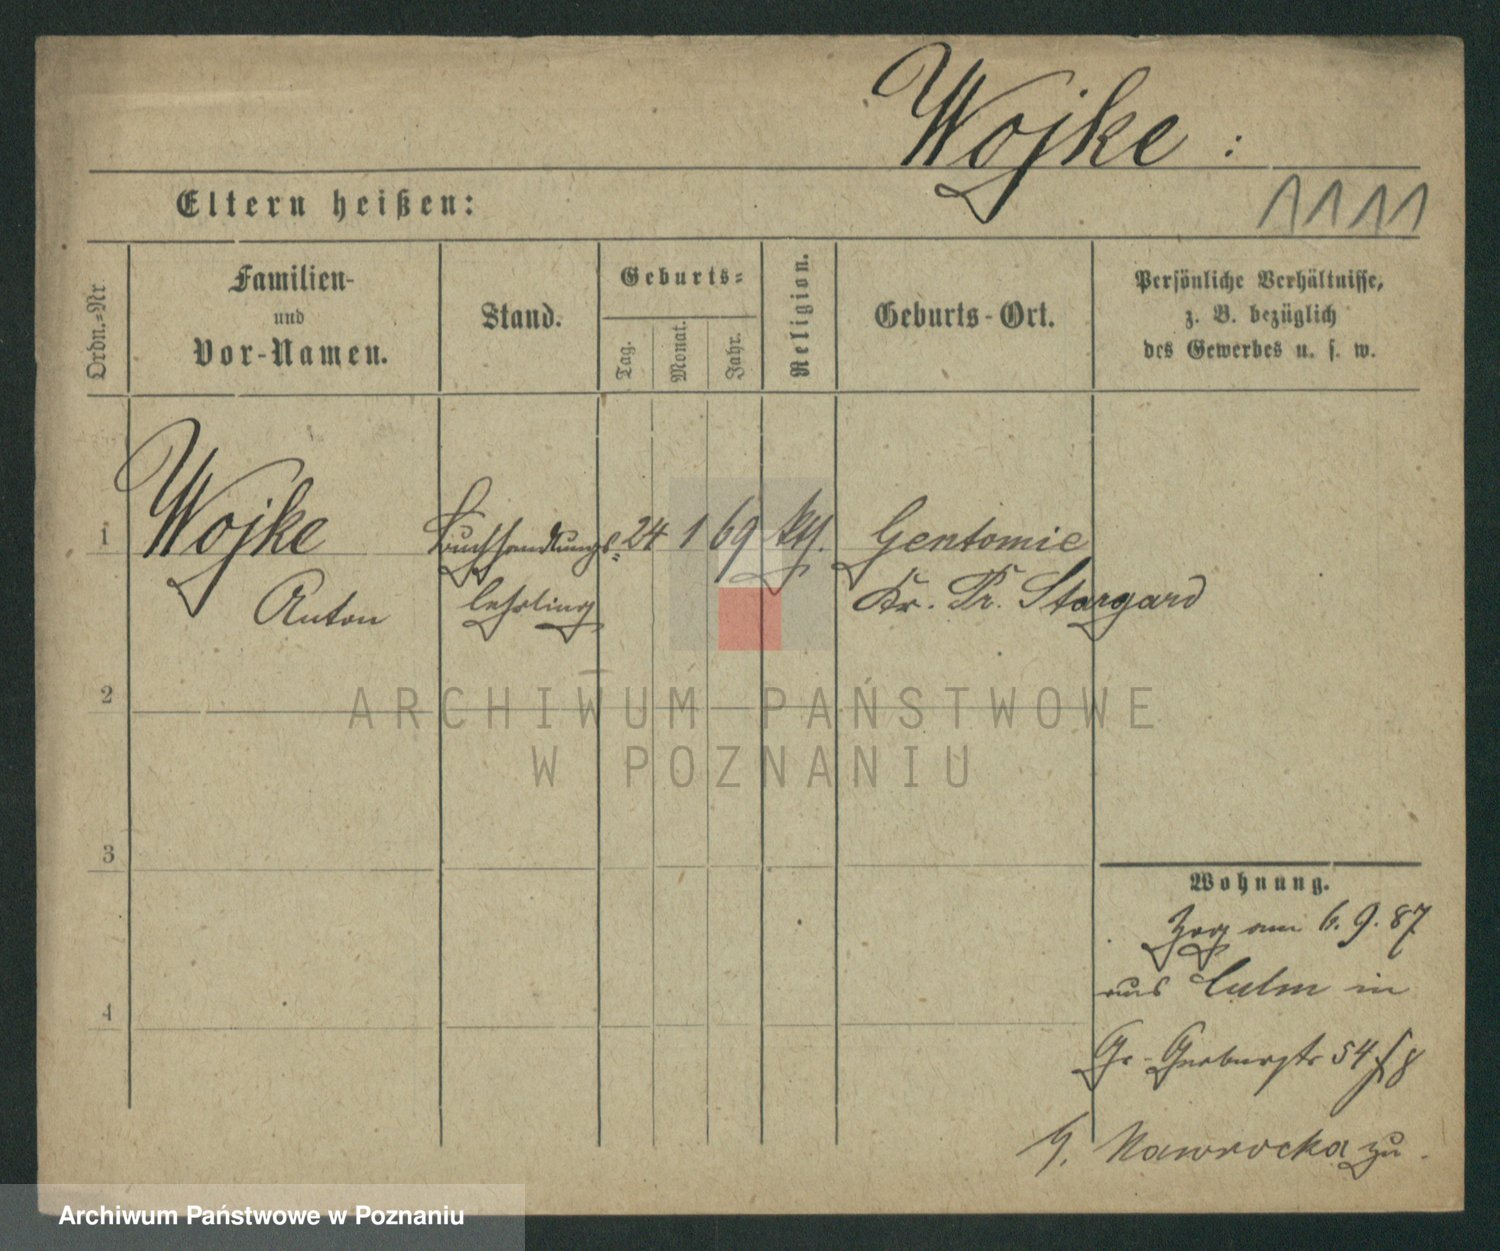 Wojke :
1111
Eltern heißen:
Ordn.-Nr
Familien-
und
Vor-Namen.
Stand.
Geburts-
Tag.
Monat.
Jahr.
Religion.
Geburts-Ort.
Persönliche Verhältnisse,
z. B. bezüglich
des Gewerbes u. s. w.
1
Wojke
Anton
Buchhandlungs-
lehrling
24 1 69 kth.
Gentomie
Kr. Pr. Stargard
2
3
4
Wohnung.
Zog am 6. 9. 87
aus Culm in
Gr. 54 8
Nawrocka zu.
ARCHIWUM PAŃSTWOWE
W POZNANIU
Archiwum Państwowe w Poznaniu